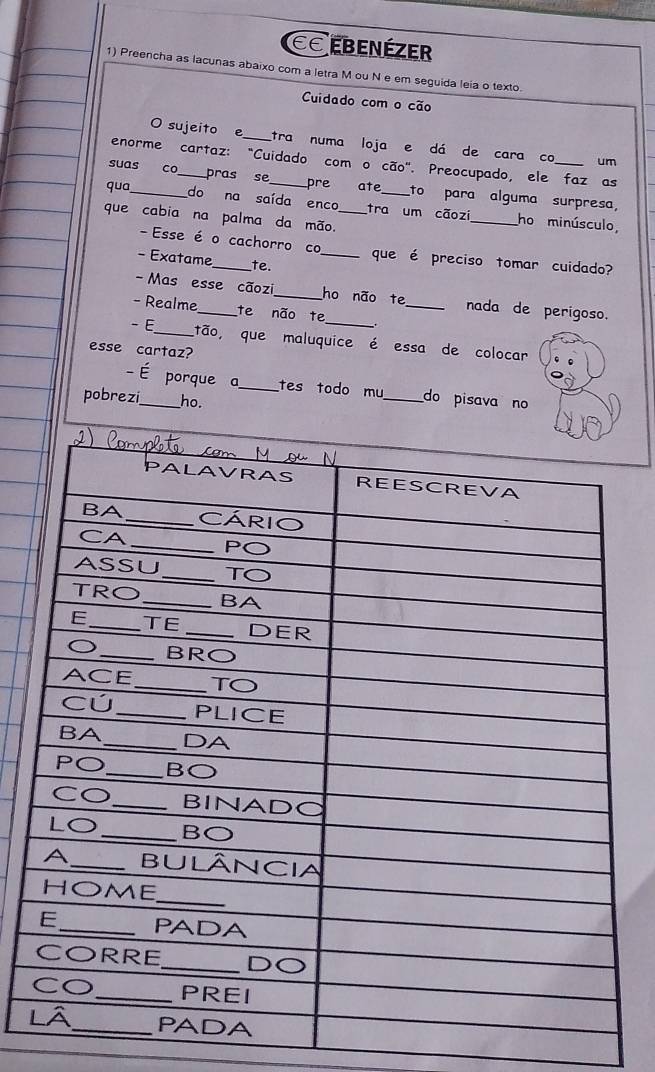 CE EBENÉZER
1) Preencha as lacunas abaixo com a letra M ou N e em seguida leia o texto.
Cuidado com o cão
O sujeito e____tra numa loja e dá de cara co____ um
enorme cartaz: "Cuidado com o cão". Preocupado, ele faz as
suas co____pras se____pre ate____to para alguma surpresa,
qua____do na saída enco____tra um cãozi____ho minúsculo,
que cabia na palma da mão.
- Esse é o cachorro co____ que é preciso tomar cuidado?
- Exatame____te.
- Mas esse cãozi____ho não te____ nada de perigoso.
- Realme____te não te____.
- E____tão, que maluquice é essa de colocar
esse cartaz?
- É porque a____tes todo mu____do pisava no
pobrezi____ho.
2) Complete com M ou N
PALAVRAS REESCREVA
BA____CÁRIO
CA____PO
ASSU____TO
TRO____BA
E____TE____DER
O____BRO
ACE____TO
CÚ____PLICE
BA____DA
PO____BO
CO____BINADO
LO____BO
A____BULÂNCIA
HOME____
E____PADA
CORRE____DO
CO____PREI
LÂ____PADA